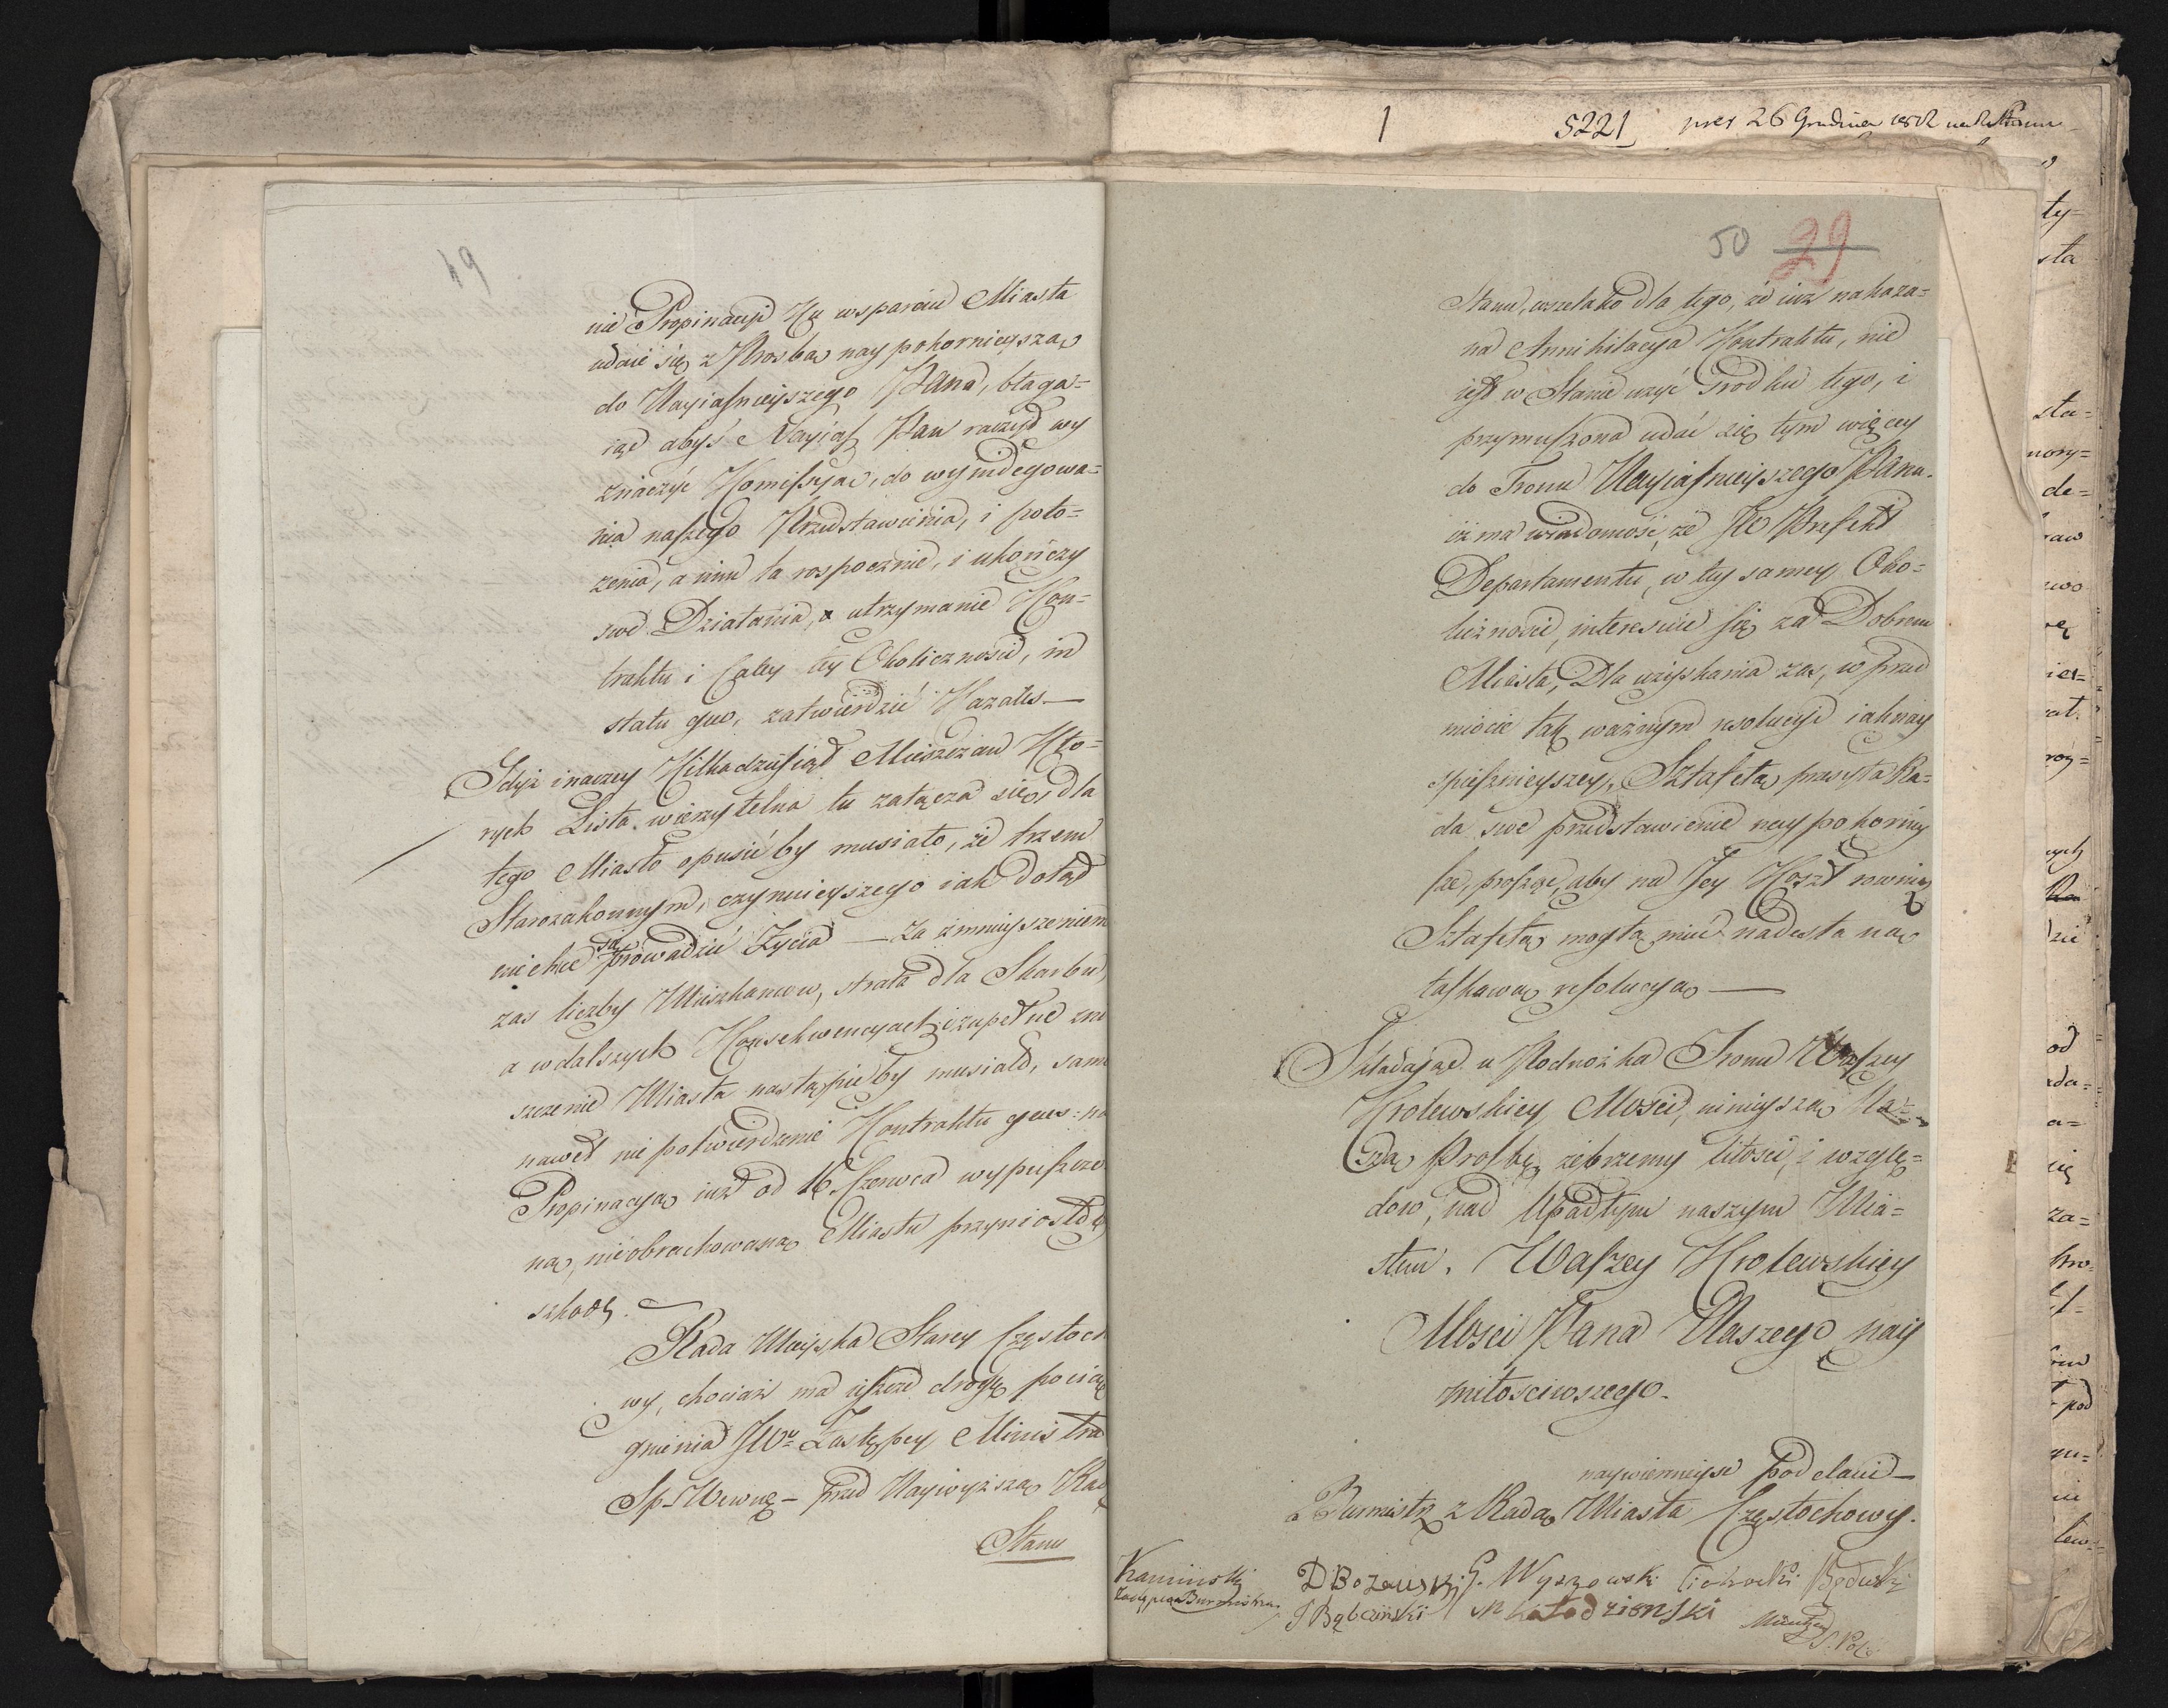 49
nie Propinacyi Ku wsparciu Miasta
udaie się z Prosbą naypokornieyszą
do Nayiaśnieyszego PANA, błaga=
iąc abyś Nayiaś Pan raczył wy
znaczyć Komissyą, do wy
nia naszego Przedstawienia, i poło=
żenia, a nim ta rospocznie, i ukończy
swe Działania, utrzymanie Kon=
traktu i całey tey Okoliczności, in
statu quo, zatwierdzić Kazałeś —
Gdyż inaczey Kilkadziesiąt Mieszczan Któ=
rych Lista wierzytelna tu załącza się, dla
tego Miasto opuścić by musiało, że trzem
Starozakonnym, czynnieyszego iak dotąd
nie chce się prowadzić Życia — Za zmnieyszeniem
zas liczby Mieszkancow, strata dla Skarbu,
a w dalszych Konsekwencyach i zupełne zni
szczenie Miasta nastąpić by musiało, samo
nawet nie potwierdzenie Kontraktu
Propinacyą iuż od 16 Czerwca wypuszczo
ną, nieobrachowaną Miastu przyniosło by
szkodę.
Rada Mieyska Starey Częstocho
wy, chociaż ma ieszcze drogę pociąg
gnienia JWo Zastępcy Ministra
Sp. Wewnę — przed Naywyższą Radę
Stanu
1
5221 pres 26 Grudnia
50 29
Stanu, wszelako dla tego, że iuż nakaza=
na Annihilacya Kontraktu, nie
iest w Stanie użyć srodku tego, i
przymuszona udać się tym więcey
do Tronu Nayiaśnieyszego PANA.
iż ma wiadomość, że JW Prefekt
Departamentu, w tey samey Oko=
liczności, interesuie się za Dobrem
Miasta, Dla uzyskania zas, w przed
miocie tak ważnym resolucyi iaknay
spieszniejszey, Sztafetą przesyła Ra=
da swe przedstawienie naypokorniey
sze, prosząc, aby na Jey Koszt rownież
Sztafetą mogła mieć nadesłaną
łaskawą resolucyą —
Składaiąc u Podnożka Tronu Waszey
Krolewskiey Mości, ninieyszą Na=
szą Prosbę, żebrzemy litości, i wzglę=
dow, nad Upadłym naszym Mia=
stem. Waszey Krolewskiey
Mości Pana Naszego nay
miłosciwszego.
naywiernieysi Poddani —
Burmistrz z Radą Miasta Częstochowy.
Kaminski
Zastępca Burmistrza
D Bożawski G. Wyszowski Cichocki
J Bąbczinski Kołodzienski